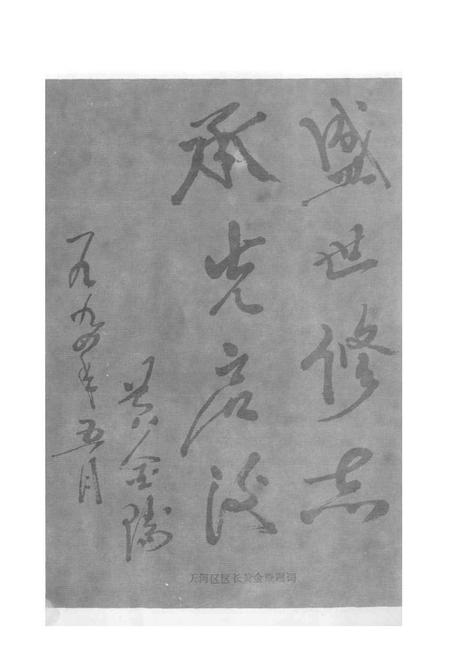 盛世修志
承先启後
黄金
一九九四年五月
天河区区长黄金题词